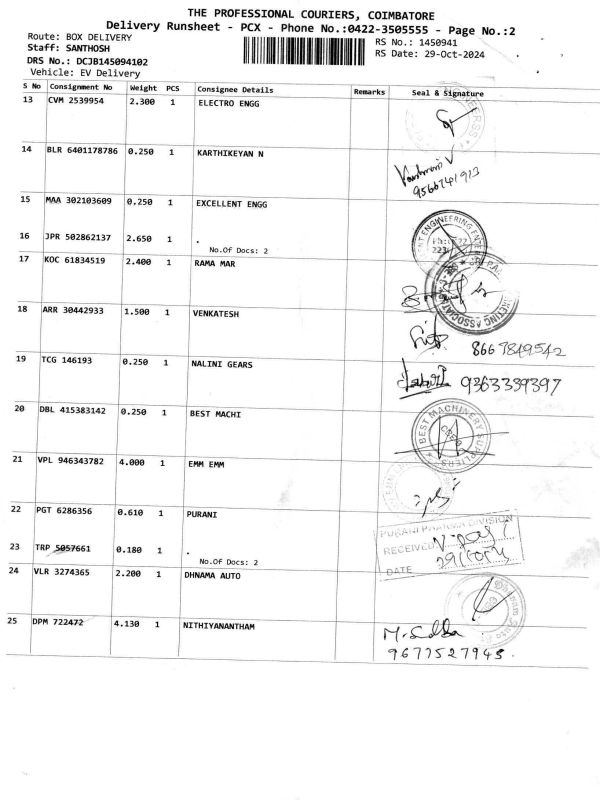 THE PROFESSIONAL COURIERS, COIMBATORE
Delivery Runsheet - PCX - Phone No.:0422-3505555 - Page No.:2
Route: BOX DELIVERY
RS No.: 1450941
Staff: SANTHOSH
RS Date: 29-Oct-2024
DRS No.: DCJB145094102
Vehicle: EV Delivery
S No Consignment No Weight PCS Consignee Details Remarks Seal & Signature
13 CVM 2539954 2.300 1 ELECTRO ENGG
14 BLR 6401178786 0.250 1 KARTHIKEYAN N
9566741913
15 MAA 302103609 0.250 1 EXCELLENT ENGG
16 JPR 502862137 2.650 1 .
No.Of Docs: 2
17 KOC 61834519 2.400 1 RAMA MAR
18 ARR 30442933 1.500 1 VENKATESH
8667849542
19 TCG 146193 0.250 1 NALINI GEARS
9363339397
20 DBL 415383142 0.250 1 BEST MACHI
BEST MACHINERY SUPPLIERS
21 VPL 946343782 4.000 1 EMM EMM
22 PGT 6286356 0.610 1 PURANI
PURANI PHARMA DIVISION
RECEIVED
DATE
23 TRP 5057661 0.180 1 .
No.Of Docs: 2
24 VLR 3274365 2.200 1 DHNAMA AUTO
25 DPM 722472 4.130 1 NITHIYANANTHAM
9677527945